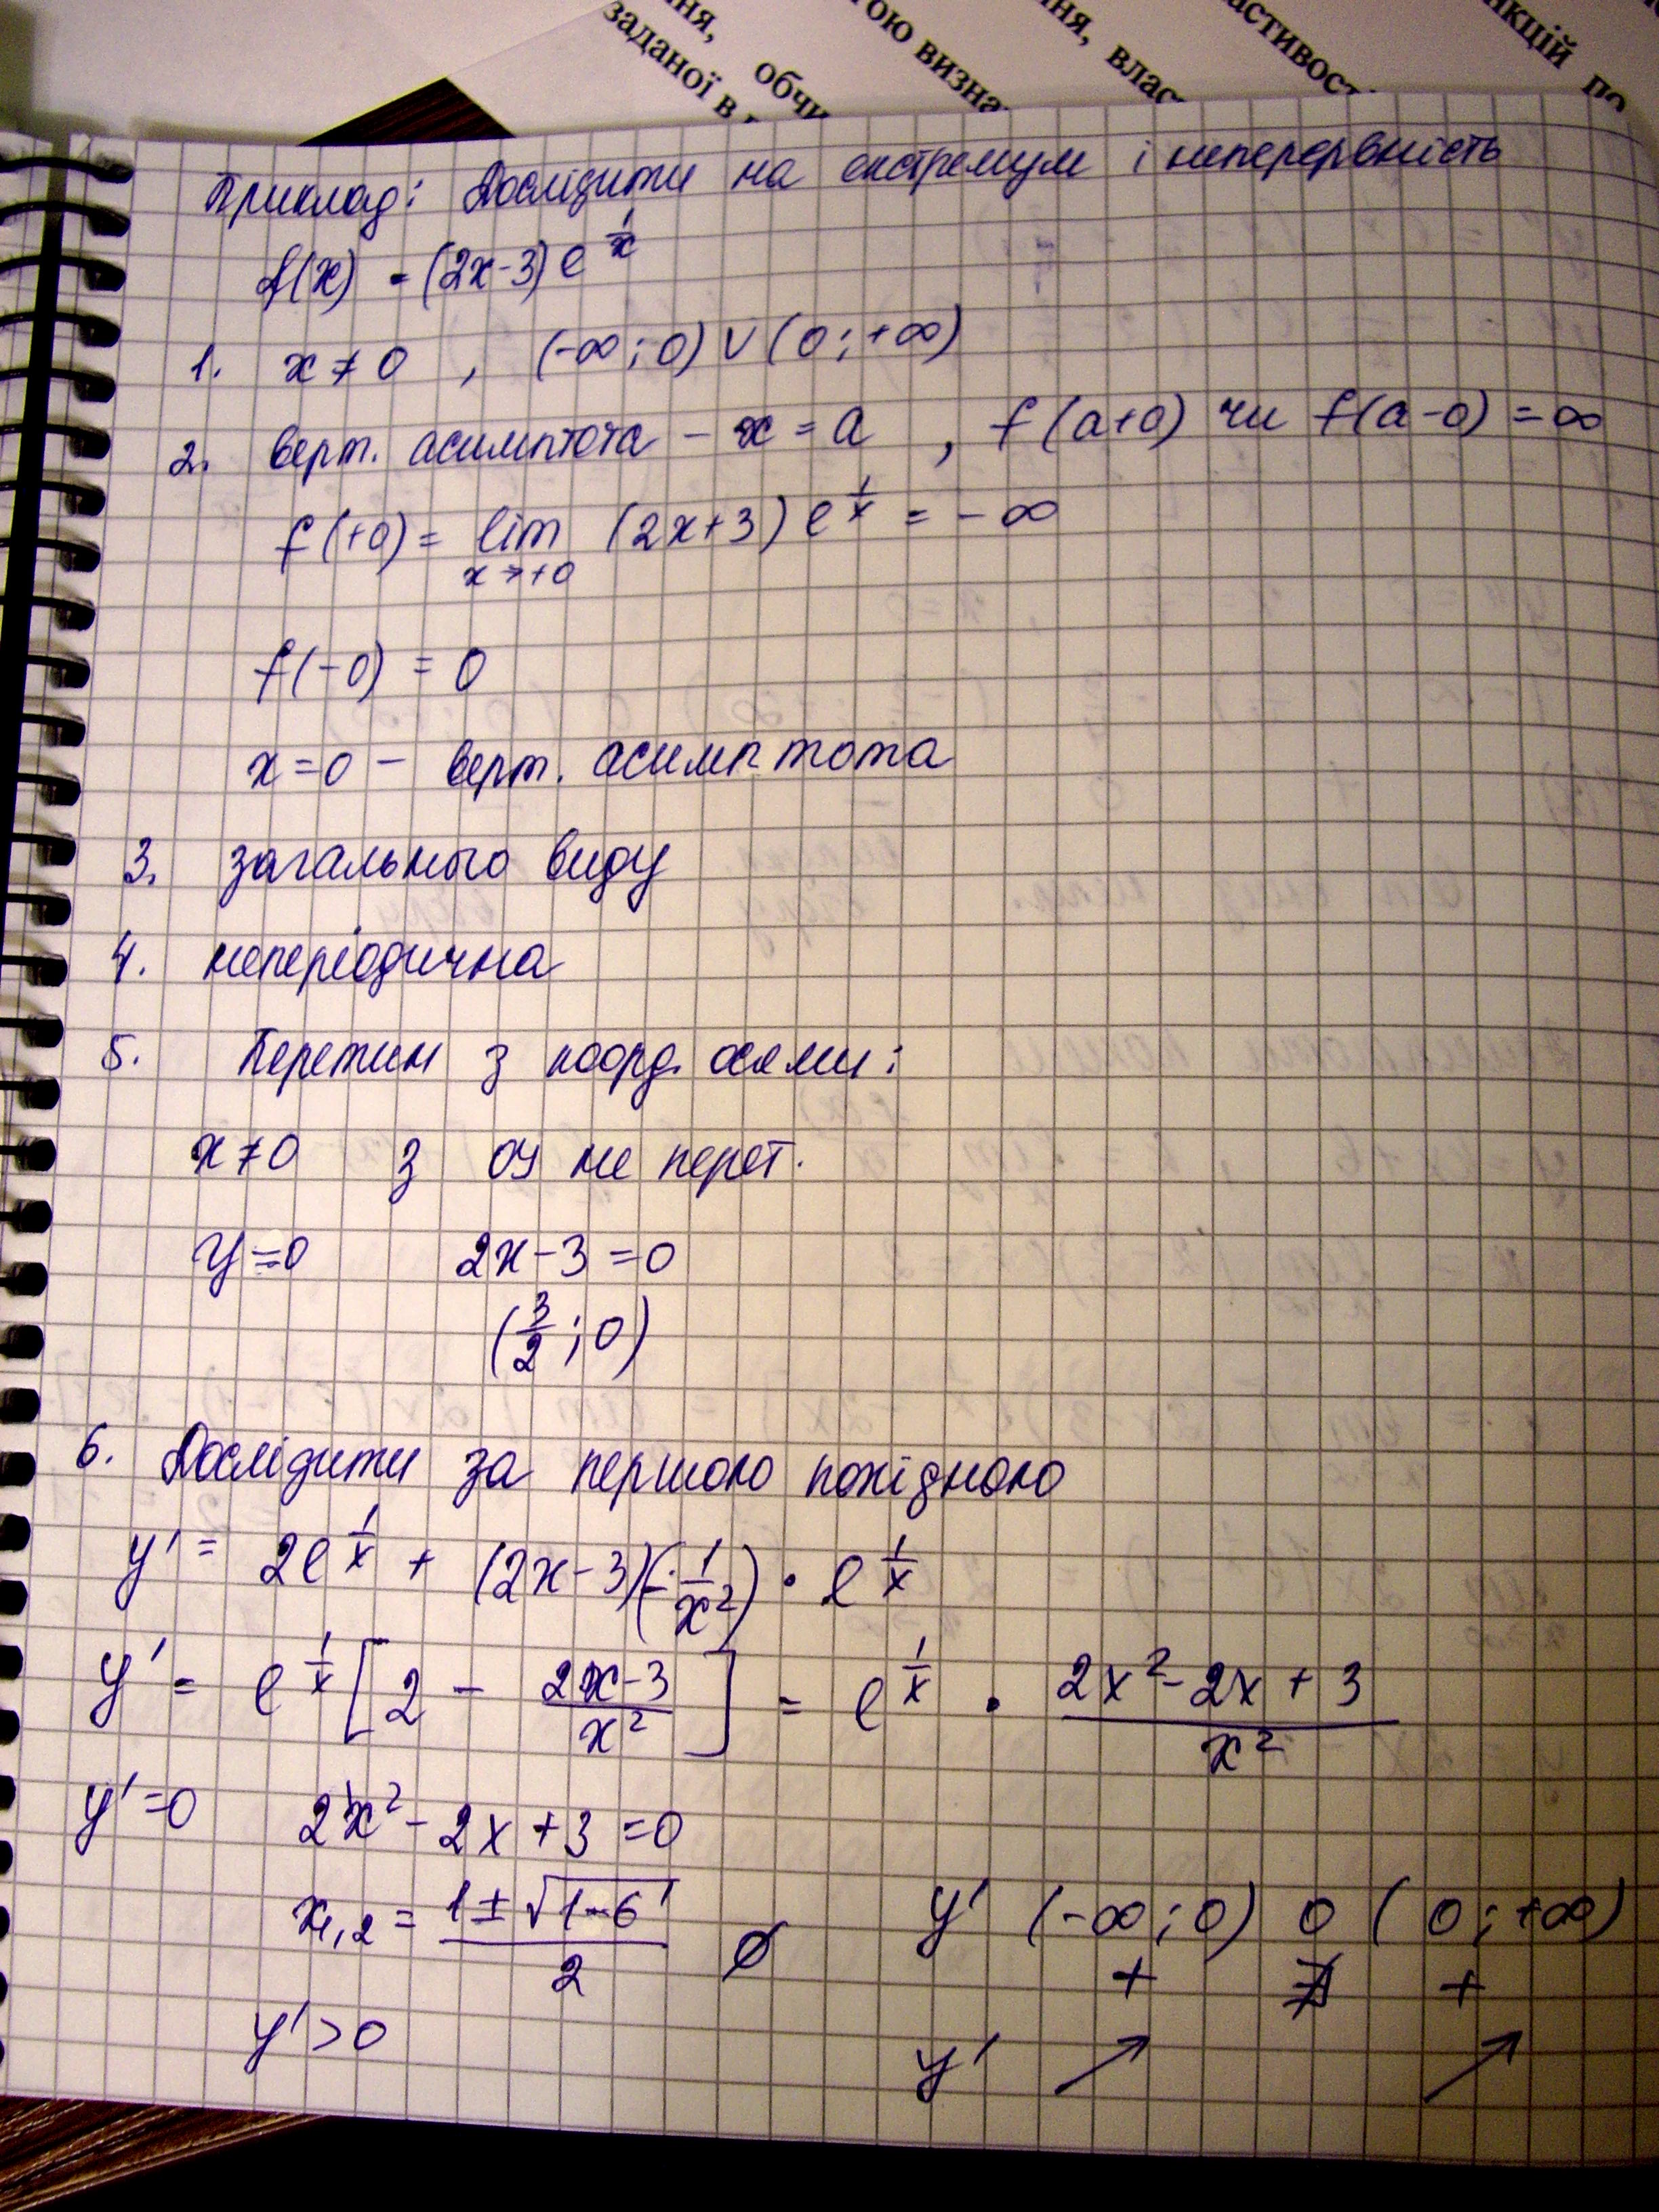 ня,
заданої в
обчи
ою визна
ня, влас
астивос
нкцій по
Приклад: Дослідити на екстремум і неперервність
f(x) = (2x-3) e^{1/x}
1. x ≠ 0 , (-∞; 0) ∪ (0; +∞)
2. верт. асимптота - x = a , f(a+0) чи f(a-0) = ∞
f(+0) = lim_{x→+0} (2x+3) e^{1/x} = -∞
f(-0) = 0
x=0 - верт. асимптота
3. загального виду
4. неперіодична
5. Перетин з коорд. осями:
x≠0 з оу не перет.
y=0 2x-3=0
(3/2; 0)
6. Дослідити за першою похідною
y' = 2e^{1/x} + (2x-3)(-1/x²) · e^{1/x}
y' = e^{1/x} [2 - (2x-3)/x²] = e^{1/x} · (2x²-2x+3)/x²
y'=0 2x²-2x+3=0
x_{1,2} = (1±√(1-6))/2 ∅ y' (-∞; 0) 0 (0; +∞)
+ ∄ +
y'>0 y' ↗ ↗